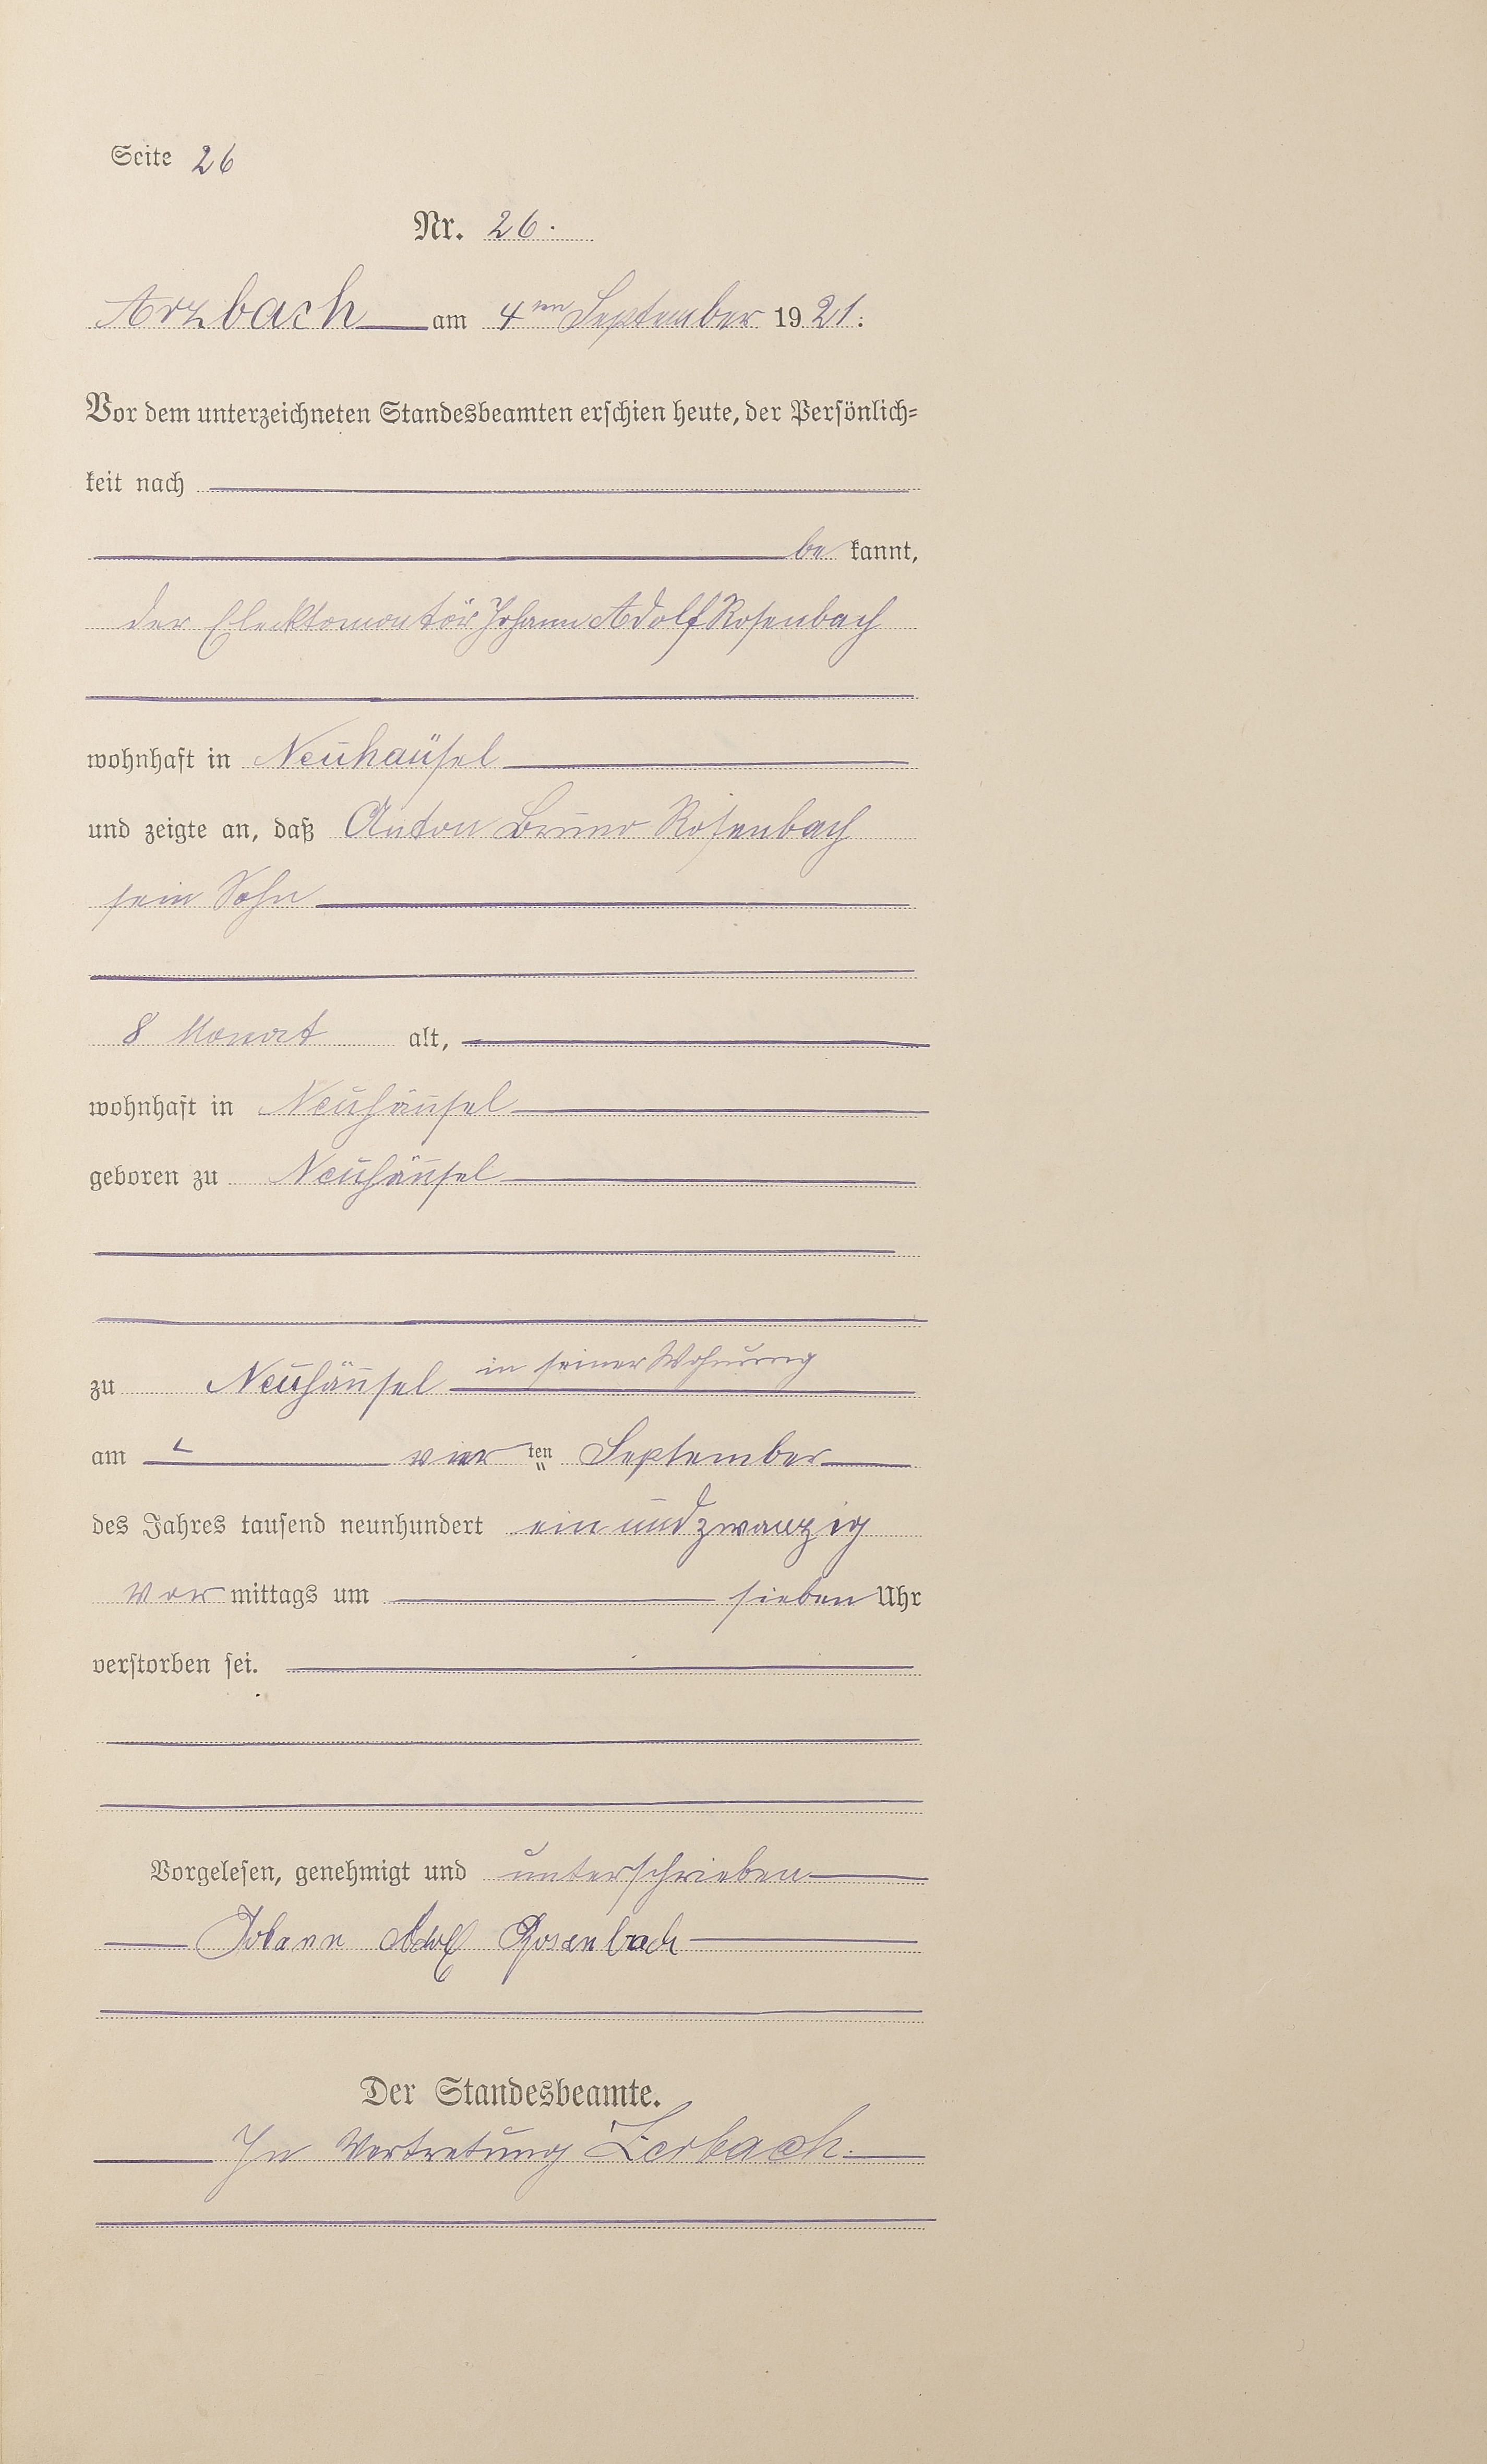 Seite 26
Nr. 26.
Arzbach am 4ten September 1921.
Vor dem unterzeichneten Standesbeamten erschien heute, der Persönlich-
keit nach
be kannt,
der Elecktomontör Johann Adolf Rosenbach
wohnhaft in Neuhaüsel
und zeigte an, daß Anton Bruno Rosenbach
sein Sohn
8 Monat alt,
wohnhaft in Neuhäusel
geboren zu Neuhäusel
zu Neuhäusel in seiner Wohnung
am vier ten September
des Jahres tausend neunhundert ein und zwanzig
Vor mittags um sieben Uhr
verstorben sei.
Vorgelesen, genehmigt und unterschrieben
Johann Adolf Rosenbach
Der Standesbeamte.
In Vertretung